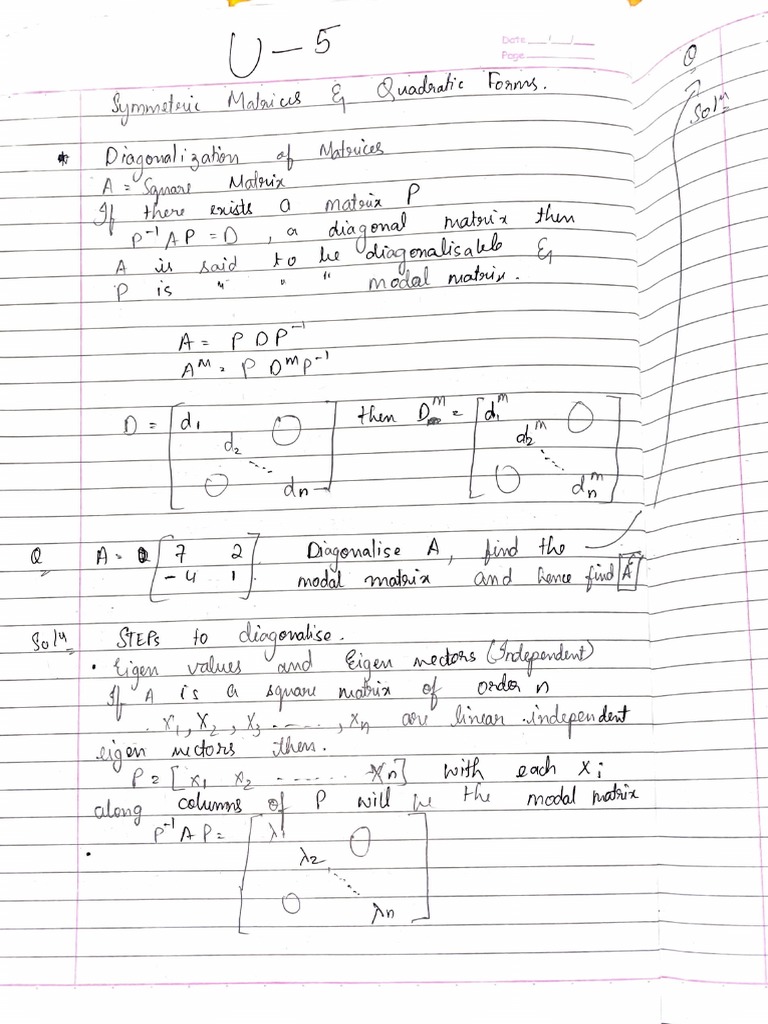 U - 5
Date __/__/__
Page
Symmetric Matrices & Quadratic Forms.
* Diagonalization of Matrices
A = Square Matrix
If there exists a matrix P
P⁻¹AP = D, a diagonal matrix then
A is said to be diagonalisable &
P is " " " modal matrix.
A = P D P⁻¹
Aᴹ = P Dᵐ P⁻¹
D = [d₁ d₂ ... dn O O] then Dᵐ = [d₁ᵐ d₂ᵐ ... dnᵐ O O]
Q A = [7 2 -4 1] Diagonalise A, find the
modal matrix and hence find
Solⁿ STEPs to diagonalise.
• Eigen values and Eigen vectors (Independent)
If A is a square matrix of order n
X₁, X₂, X₃ ......, Xn are linear independent
eigen vectors then.
P = [X₁ X₂ ...... Xn] with each Xi
along columns of P will be the modal matrix
• P⁻¹AP = [λ₁ λ₂ ... λn O O]
Q
Solⁿ